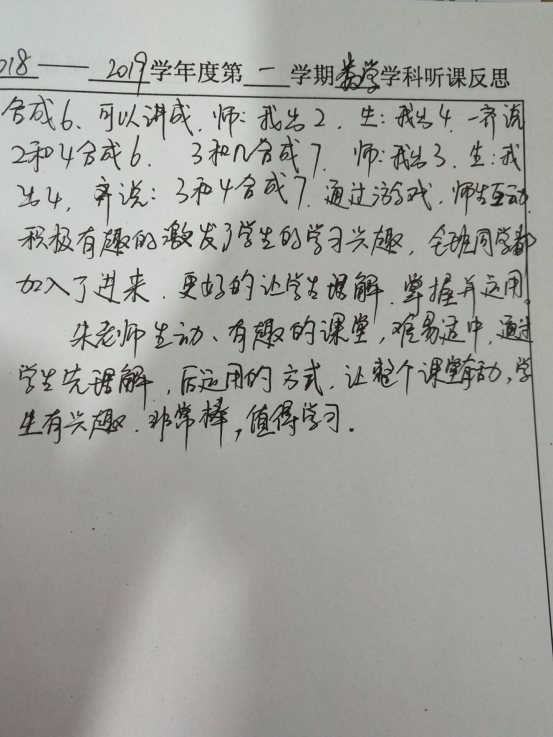 018——2019学年度第一学期数学学科听课反思
合成6、可以讲成.师:我出2.生:我出4.一齐说
2和4合成6. 3和几合成7.师:我出3.生:我
出4,齐说:3和4合成7.通过游戏,师生互动
积极有趣的激发了学生的学习兴趣,全班同学都
加入了进来.更好的让学生理解.掌握并运用。
朱老师生动、有趣的课堂,难易适中,通过
学生先理解,后运用的方式,让整个课堂有动,学
生有兴趣.非常棒,值得学习.